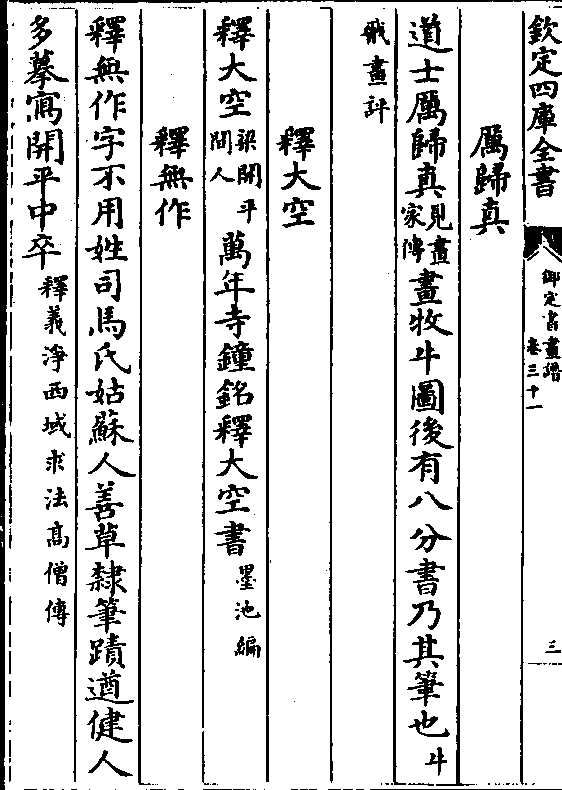 欽定四庫全書
御定書畫譜
卷三十一
三
厲歸真
道士厲歸真見畫家傳畫牧牛圖後有八分書乃其筆也牛
戩畫評
釋大空
釋大空梁開平間人萬年寺鐘銘釋大空書墨池編
釋無作
釋無作字不用姓司馬氏姑蘇人善草隸筆蹟遒健人
多摹寫開平中卒釋義淨西域求法高僧傳